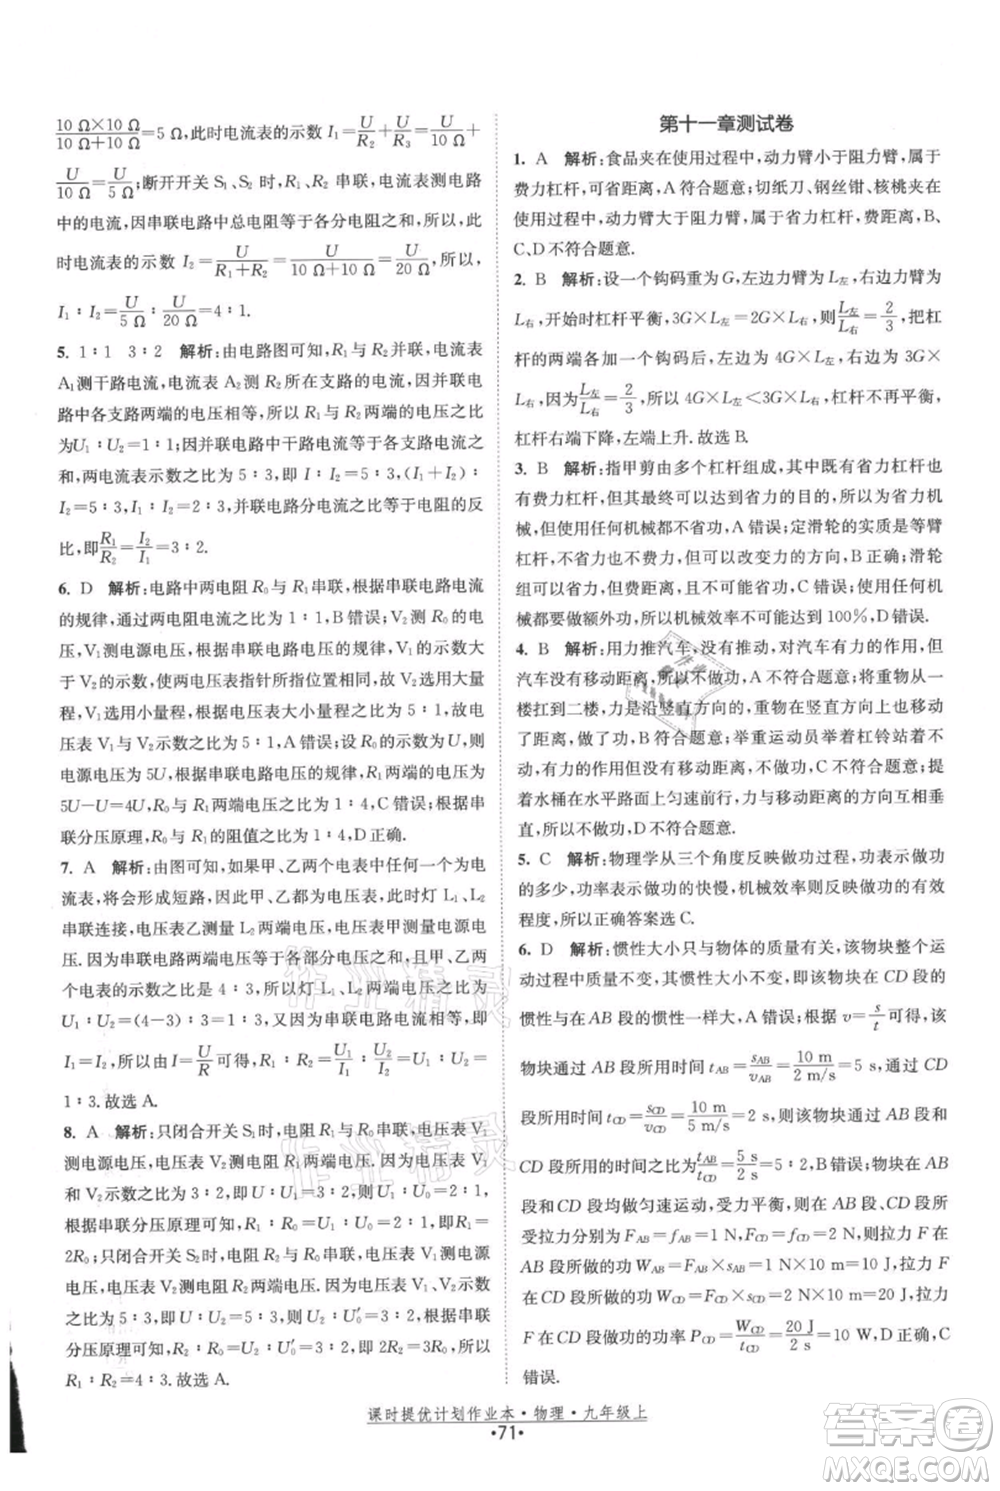 10 Ω×10 Ω/10 Ω+10 Ω=5 Ω,此时电流表的示数 I₁=U/R₂+U/R₃=U/10 Ω+
U/10 Ω=U/5 Ω;断开开关 S₁、S₂ 时,R₁、R₂ 串联,电流表测电路
中的电流,因串联电路中总电阻等于各分电阻之和,所以,此
时电流表的示数 I₂=U/R₁+R₂=U/10 Ω+10 Ω=U/20 Ω,所以,
I₁∶I₂=U/5 Ω∶U/20 Ω=4∶1.
5. 1∶1 3∶2 解析:由电路图可知,R₁ 与 R₂ 并联,电流表
A₁测干路电流,电流表 A₂测 R₁ 所在支路的电流;因并联电
路中各支路两端的电压相等,所以 R₁、R₂ 两端的电压之比
为U₁∶U₂=1∶1;因并联电路中干路电流等于各支路电流之
和,两电流表示数之比为 5∶3,即 I∶I₁=5∶3,(I₁+I₂)∶
I₂=5∶3,所以,I₁∶I₂=2∶3,因并联电路分电流之比等于电阻的反
比,即R₁/R₂=I₂/I₁=3∶2.
6. D 解析:电路中两电阻 R₀与 R₁串联,根据串联电路电流
的规律,两电阻电流之比为 1∶1,B 错误;V₂ 测 R₀ 的电压,
V₁ 测电源电压,根据串联电路电压的规律,所以 V₁ 的示数
大于 V₂ 的示数,而两电压表指针偏转相同,故 V₁ 选用大量
程,V₂ 选用小量程,根据电压表大小量程之比为 5∶1,故电
压表 V₁ 与 V₂ 示数之比为 5∶1,A 错误;设 R₀的示数为U,则
电源电压为 5U,根据串联电路电压的规律,R₁ 的电压为
5U—U=4U,R₀与 R₁ 两端电压之比为 1∶4,C 错误;根据串
联分压原理,R₀与 R₁ 的阻值之比为 1∶4,D 正确.
7. A 解析:由图可知,如果甲、乙两个电表有一个表是电
流表,就会造成短路,因此甲、乙都是电压表;此时灯 L₁、L₂
串联连接,电压表乙测量 L₂ 两端电压,电压表甲测量电源电
压,根据串联电路电压的规律,所以甲的示数大,则甲、乙电
表的示数之比为 4∶3,所以灯L₁、L₂两端电压之比为
U₁∶U₂=(4—3)∶3=1∶3;因为串联电路电流处处相等,即
I₁=I₂,所以由 I=U/R可得,R₁∶R₂=U₁/I₁∶U₂/I₂=U₁∶U₂=
1∶3.故选 A.
8. A 解析:只闭合开关 S₁时,R₁、R₂串联,电压表 V₁
测电源电压,电压表 V₂ 测电阻 R₂ 两端电压,电压表 V₁、V₂
示数之比为 3∶2,即 U∶U₂=3∶2,则 U₁∶U₂=1∶2,
根据串联分压原理可知 R₁∶R₂=U₁∶U₂=1∶2,即 R₂=
2R₁;只闭合开关 S₂时,R₂、R₃ 串联,电压表V₁测电源
电压,电压表 V₂测电阻 R₂两端电压,电压表V₁、V₂示
数之比为 5∶3,即 U∶U₂′=5∶3,则 U₃∶U₂′=2∶3,根据串联
分压原理可知 R₃∶R₂=U₃∶U₂′=2∶3,即 R₂=3/2R₃.所以
R₁∶R₃=3∶4.故选 A.
第十一章测试卷
1. A 解析:食品夹在使用过程中,动力臂小于阻力臂,属于
费力杠杆,可省距离,A 符合题意;切纸刀、钢丝钳、核桃夹在
使用过程中,动力臂大于阻力臂,属于省力杠杆,费距离,B、
C、D 不符合题意.
2. B 解析:设一个钩码重为 G,左边力臂为 L左,右边力臂为
L右,开始时杠杆平衡,3G×L左=2G×L右,则L左/L右=2/3,把杠
杆的两端各加一个钩码后,左边为 4G×L左,右边为 3G×
L右,因为L左/L右=2/3,所以 4G×L左<3G×L右,杠杆不再平衡,
杠杆右端下降,左端上升.故选 B.
3. B 解析:指甲剪由多个杠杆组成,其中既有省力杠杆,也
有费力杠杆,整体表现为省力的杠杆,所以为省力机
械,任何机械都不省功,A 错误;定滑轮的实质是等臂
杠杆,不省力,也不费力,但可以改变力的方向,B 正确;滑轮
组可以省力,但不能省功,C 错误;使用任何机械都
要做额外功,所以机械效率不可能达到 100%,D 错误.
4. B 解析:用力推汽车,没有推动,对汽车有力的作用,
但汽车没有移动距离,所以不做功,A 不符合题意;将重物从一
楼扛到二楼,力是沿竖直方向的,重物在竖直方向上移动
了距离,所以做功,B 符合题意;举重运动员举着杠铃站着
不动,有力但无距离,不做功,C 不符合题意;
提着水桶在水平路面上匀速前行,力与移动距离的方向垂
直,所以不做功,D 不符合题意.
5. C 解析:物理学从三个角度反映做功过程,功表示做功
的多少,功率表示做功的快慢,机械效率反映做功的有效
程度,所以正确答案选 C.
6. D 解析:惯性大小只与物体的质量有关,该物块整个运
动过程中质量不变,其惯性大小不变,即该物块在 CD 段的
惯性与在 AB 段的惯性一样大,A 错误;根据 v=s/t可得,该
物块通过 AB 段所用的时间 tAB=sAB/vAB=10 m/2 m/s=5 s,通过 CD
段所用的时间 tCD=sCD/vCD=10 m/5 m/s=2 s,则该物块通过 AB 段与
CD 段所用时间之比tAB/tCD=5 s/2 s=5∶2,B 错误;物块在 AB
段和 CD 段均做匀速运动,受力平衡,所以在 AB 段、CD 段
受拉力分别为FAB=fAB=1 N,FCD=fCD=2 N,拉力 F 在
AB 段做的功 WAB=FABsAB=1 N×10 m=10 J,拉力 F 在
CD 段做的功 WCD=FCDsCD=2 N×10 m=20 J,C 错误;拉力
F 在 CD 段做功的功率 PCD=WCD/tCD=20 J/2 s=10 W,
错误.
课时提优计划作业本·物理·九年级上
·71·
作业精灵
作业精灵
答案圈
MXQE.COM